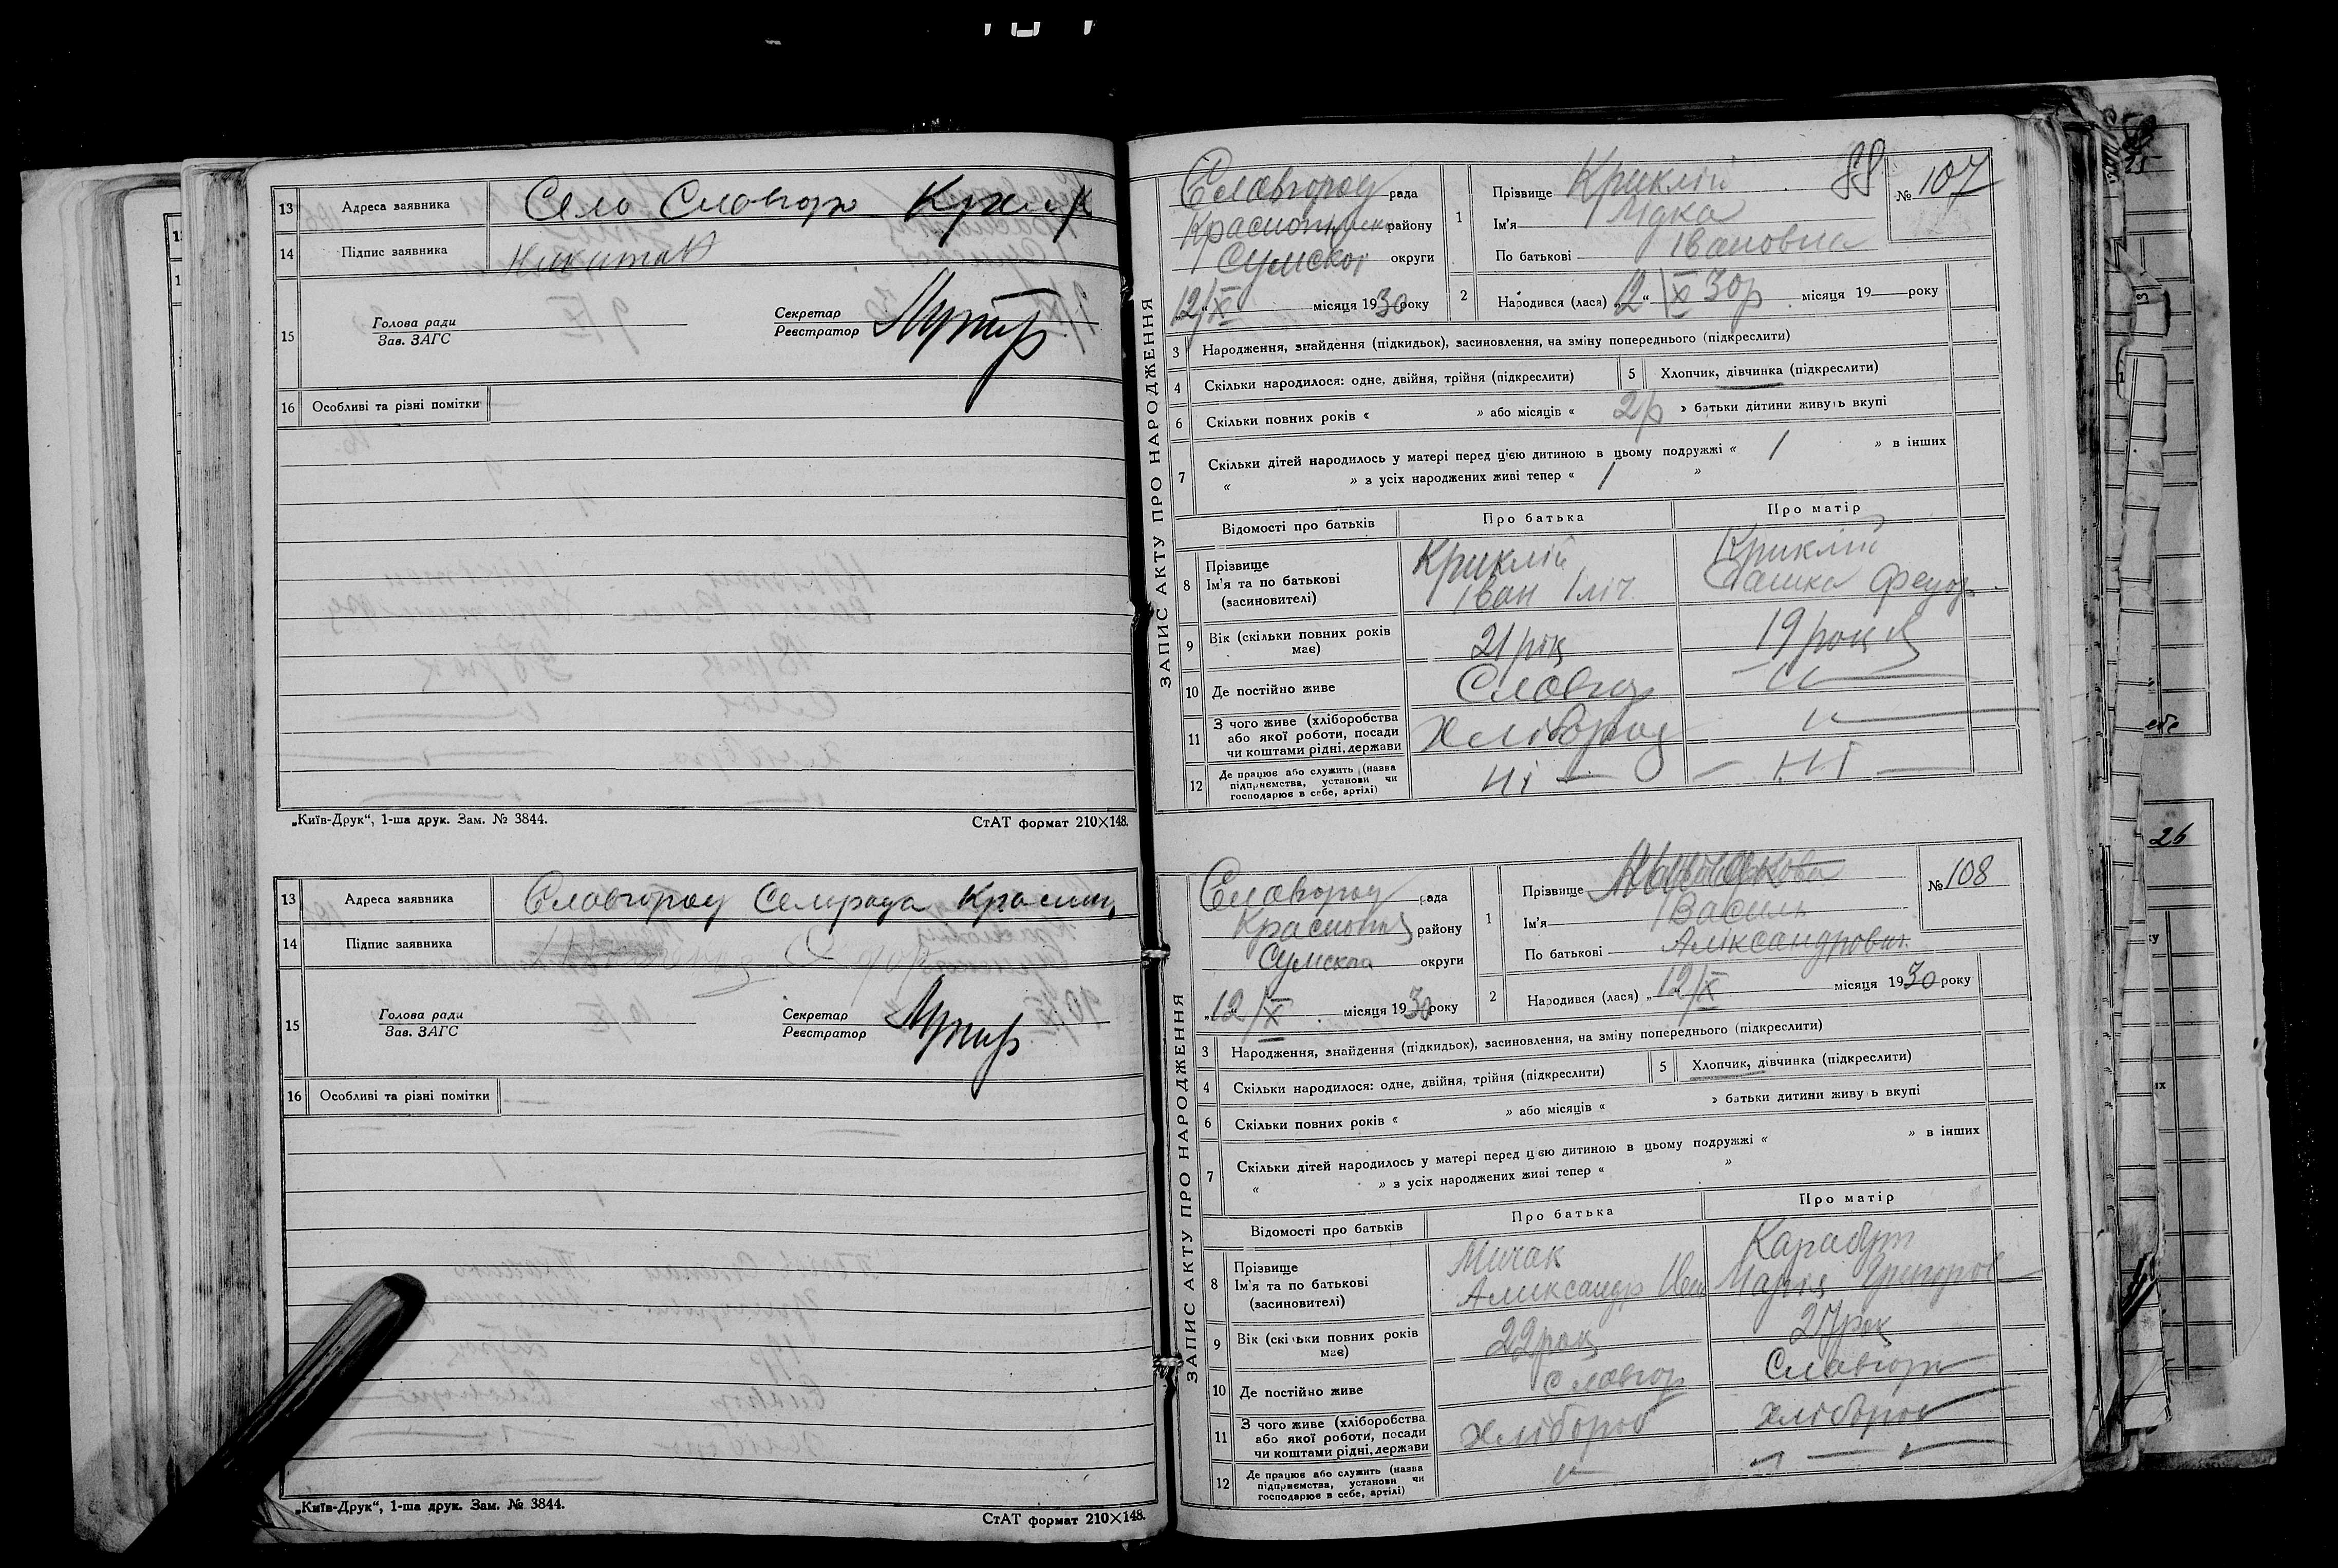 13 Адреса заявника Село Славгор
14 Підпис заявника
15 Голова ради
Зав. ЗАГС
Секретар
Реєстратор
16 Особливі та різні помітки
„Київ-Друк“, 1-ша друк. Зам. № 3844.
СтАТ формат 210×148.
13 Адреса заявника Славгород Селрада
14 Підпис заявника
15 Голова ради
Зав. ЗАГС
Секретар
Реєстратор
16 Особливі та різні помітки
„Київ-Друк“, 1-ша друк. Зам. № 3844.
СтАТ формат 210×148.
ЗАПИС АКТУ ПРО НАРОДЖЕННЯ
88
№ 107
Славгород рада
району
Сумског округи
„12/IX місяця 1930 року
1 Прізвище Криклій
Ім'я Лідка
По батькові Івановна
2 Народився (лася) „2“ IX 30р місяця 19 року
3 Народження, знайдення (підкидьок), засиновлення, на зміну попереднього (підкреслити)
4 Скільки народилося: одне, двійня, трійня (підкреслити)
5 Хлопчик, дівчинка (підкреслити)
6 Скільки повних років « » або місяців « 2р » батьки дитини живуть вкупі
7 Скільки дітей народилось у матері перед цією дитиною в цьому подружжі « 1 » в інших
« » з усіх народжених живі тепер « 1 »
Відомості про батьків Про батька Про матір
8 Прізвище
Ім'я та по батькові
(засновителі)
Криклій
Іван Іліч
Криклій
Пашка Федор
9 Вік (скільки повних років має) 21 рік 19 рок
10 Де постійно живе Славгор —〃—
11 З чого живе (хліборобства або якої роботи, посади чи коштами рідні, держави Хлібороб 〃—
12 Де працює або служить (назва підприємства, установи чи господарює в себе, артілі) Ні — — Ні —
ЗАПИС АКТУ ПРО НАРОДЖЕННЯ
№ 108
Славгород рада
Краснопіл району
Сумского округи
„12/IX місяця 1930 року
1 Прізвище
Ім'я Василь
По батькові Аліксандрович
2 Народився (лася) „12/IX місяця 1930 року
3 Народження, знайдення (підкидьок), засиновлення, на зміну попереднього (підкреслити)
4 Скільки народилося: одне, двійня, трійня (підкреслити)
5 Хлопчик, дівчинка (підкреслити)
6 Скільки повних років « » або місяців « » батьки дитини живуть вкупі
7 Скільки дітей народилось у матері перед цією дитиною в цьому подружжі « » в інших
« » з усіх народжених живі тепер « »
Відомості про батьків Про батька Про матір
8 Прізвище
Ім'я та по батькові
(засновителі)
Мичак
Александр Иван
Карабут
Марія Григоров
9 Вік (скільки повних років має) 22 рок 27 рок
10 Де постійно живе Славгор Славгор
11 З чого живе (хліборобства або якої роботи, посади чи коштами рідні, держави Хлібороб хлібороб
12 Де працює або служить (назва підприємства, установи чи господарює в себе, артілі)
26